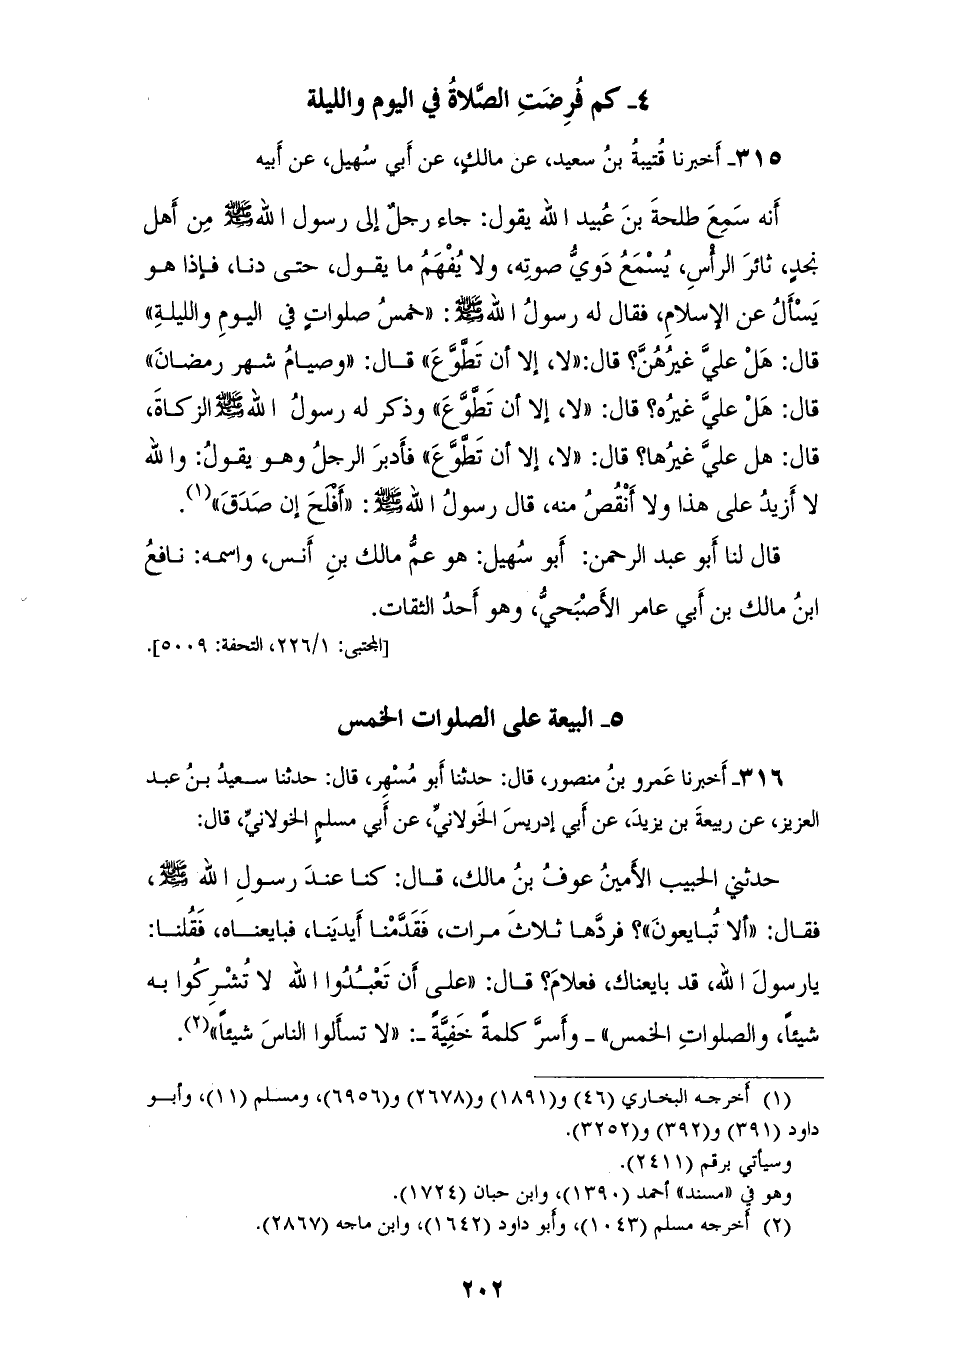 ٤ـ كم فُرِضَتِ الصَّلاةُ في اليوم والليلة
٣١٥ـ أَخبرنا قُتيبةُ بنُ سعيد، عن مالكٍ، عن أَبي سُهيل، عن أَبيه
أَنه سَمِعَ طلحةَ بنَ عُبيد الله يقول: جاء رجلٌ إلى رسول الله ﷺ مِن أَهل
نجدٍ، ثائرَ الرأْسِ، يُسْمَعُ دَويُّ صوتِه، ولا يُفْهَمُ ما يقول، حتى دنا، فإذا هو
يَسْأَلُ عن الإسلامِ، فقال له رسولُ الله ﷺ: «خمسُ صلواتٍ في اليومِ والليلةِ»
قال: هَلْ عليَّ غيرُهُنَّ؟ قال:«لا، إلا أن تَطَّوَّعَ» قال: «وصيامُ شهر رمضانَ»
قال: هَلْ عليَّ غيرُه؟ قال: «لا، إلا أن تَطَّوَّعَ» وذكر له رسولُ الله ﷺ الزكاةَ،
قال: هل عليَّ غيرُها؟ قال: «لا، إلا أن تَطَّوَّعَ» فأَدبرَ الرجلُ وهو يقولُ: والله
لا أَزيدُ على هذا ولا أَنْقُصُ منه، قال رسولُ الله ﷺ: «أَفْلَحَ إن صَدَقَ»(١).
قال لنا أَبو عبد الرحمن: أَبو سُهيل: هو عمُّ مالك بنِ أَنس، واسمه: نافعُ
ابنُ مالك بن أَبي عامر الأَصْبَحيُّ، وهو أَحدُ الثقات.
[المجتبى: ٢٢٦/١، التحفة: ٥٠٠٩].
٥ـ البيعة على الصلوات الخمس
٣١٦ـ أَخبرنا عَمرو بنُ منصور، قال: حدثنا أَبو مُسْهِر، قال: حدثنا سعيدُ بنُ عبد
العزيز، عن ربيعةَ بن يزيدَ، عن أَبي إدريسَ الخَولانيِّ، عن أَبي مسلمٍ الخولانيِّ، قال:
حدثني الحبيب الأَمينُ عوفُ بنُ مالك، قال: كنا عندَ رسولِ الله ﷺ،
فقال: «أَلا تُبايعونَ»؟ فردَّها ثلاثَ مرات، فَقَدَّمْنا أَيدِيَنا، فبايعناه، فَقُلنا:
يارسولَ الله، قد بايعناك، فعلامَ؟ قال: «على أن تَعْبُدُوا الله لا تُشْرِكُوا به
شيئاً، والصلواتِ الخمس» ـ وأَسرَّ كلمةً خَفِيَّةً ـ: «لا تسأَلوا الناسَ شيئاً»(٢).
(١) أَخرجه البخاري (٤٦) و(١٨٩١) و(٢٦٧٨) و(٦٩٥٦)، ومسلم (١١)، وأَبو
داود (٣٩١) و(٣٩٢) و(٣٢٥٢).
وسيأتي برقم (٢٤١١).
وهو في «مسند» أحمد (١٣٩٠)، وابن حبان (١٧٢٤).
(٢) أَخرجه مسلم (١٠٤٣)، وأَبو داود (١٦٤٢)، وابن ماجه (٢٨٦٧).
٢٠٢